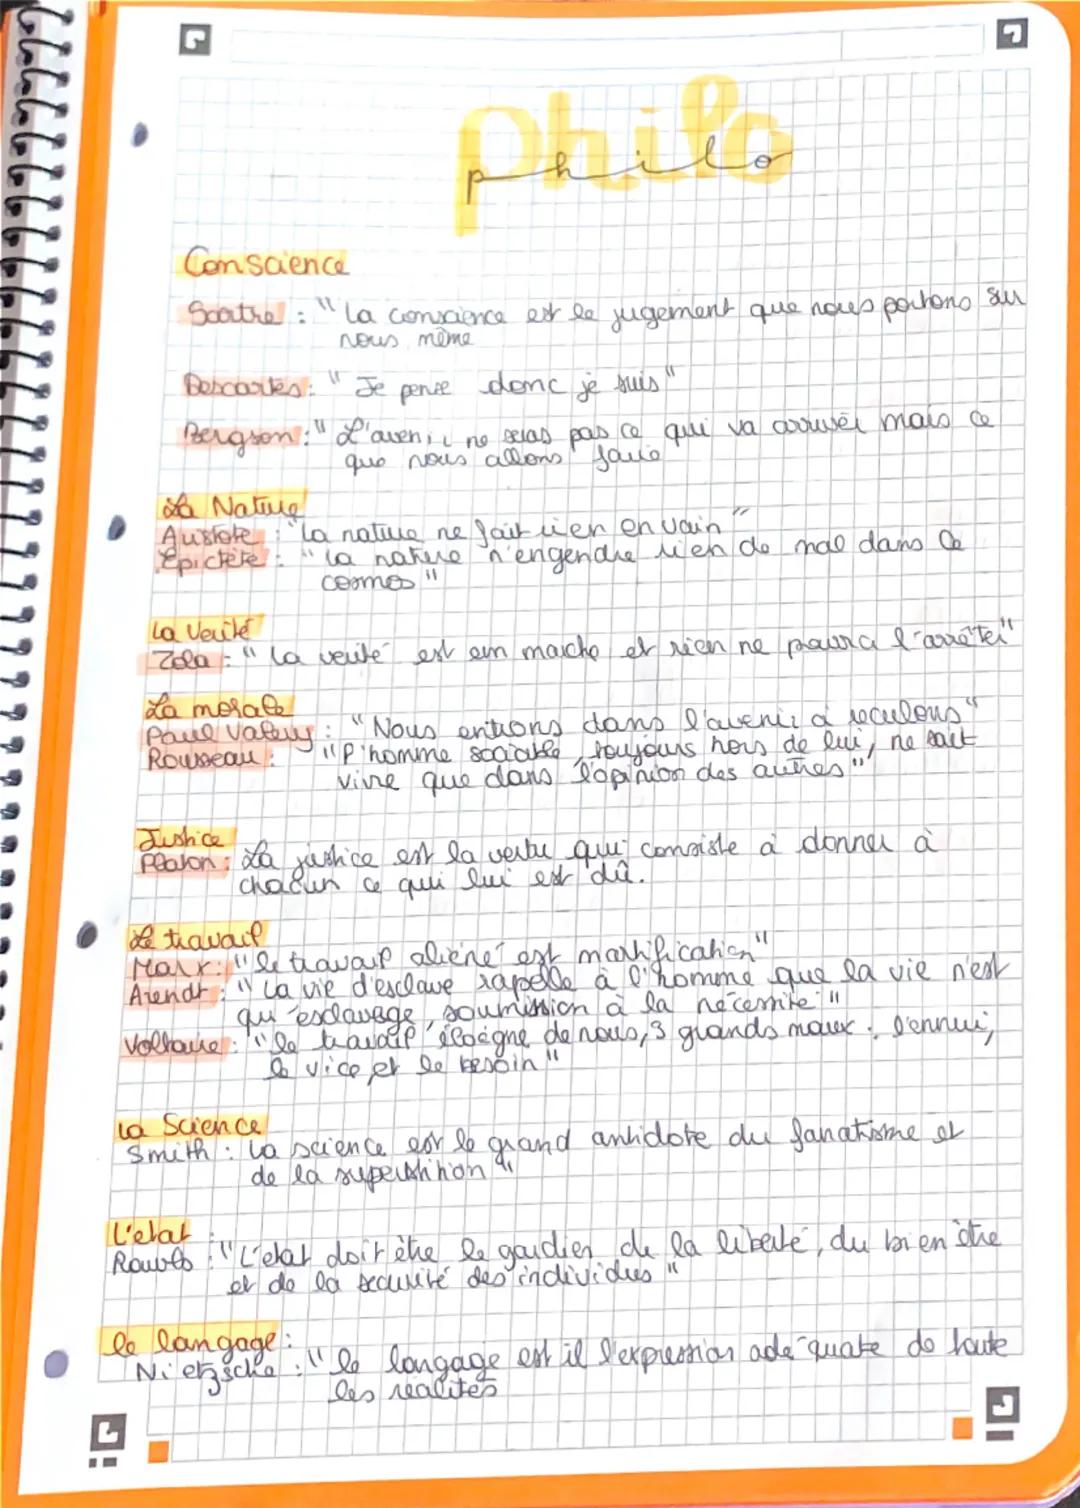 Philo
philo
Conscience
Sartre : "La conscience est le jugement que nous portons sur
nous même
Descartes : " Je pense donc je suis"
Bergson : " L'avenir ne seras pas ce qui va arriver mais ce
que nous allons faire
La Nature
Aristote : "La nature ne fait rien en vain"
Epictète : "La nature n'engendre rien de mal dans le
cosmos"
La Verité
Zola : " La verité est em marche et rien ne pourra l'arrêter"
La morale
Paul Valery : "Nous entrons dans l'avenir à reculons"
Rousseau : "l'homme sociable, toujours hors de lui, ne sait
vivre que dans l'opinion des autres"
Justice
Platon : La justice est la vertu qui consiste à donner à
chacun ce qui lui est dû.
Le travail
Marx : "le travail aliéné est mortification"
Arendt : "La vie d'esclave rapelle à l'homme que la vie n'est
qu'esclavage, soumission à la nécessité"
Voltaire : "le travail éloigne de nous, 3 grands maux : l'ennui,
le vice et le besoin"
La Science
Smith : La science est le grand antidote du fanatisme et
de la superstition"
L'etat :
Rawls : "L'etat doit être le gardien de la liberté, du bien être
et de la securité des individus"
le langage :
Nietzsche : "le langage est il l'expression adéquate de toute
les réalités